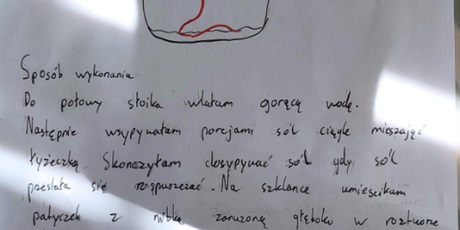 Sposób wykonania.
Do połowy słoika wlałam gorącą wodę.
Następnie wsypywałam porcjami sól ciągle mieszając
łyżeczką. Skończyłam dosypywać sól gdy sól
przestała się rozpuszczać. Na szklance umieściłam
patyczek z nitką zanurzoną głęboko w roztworze